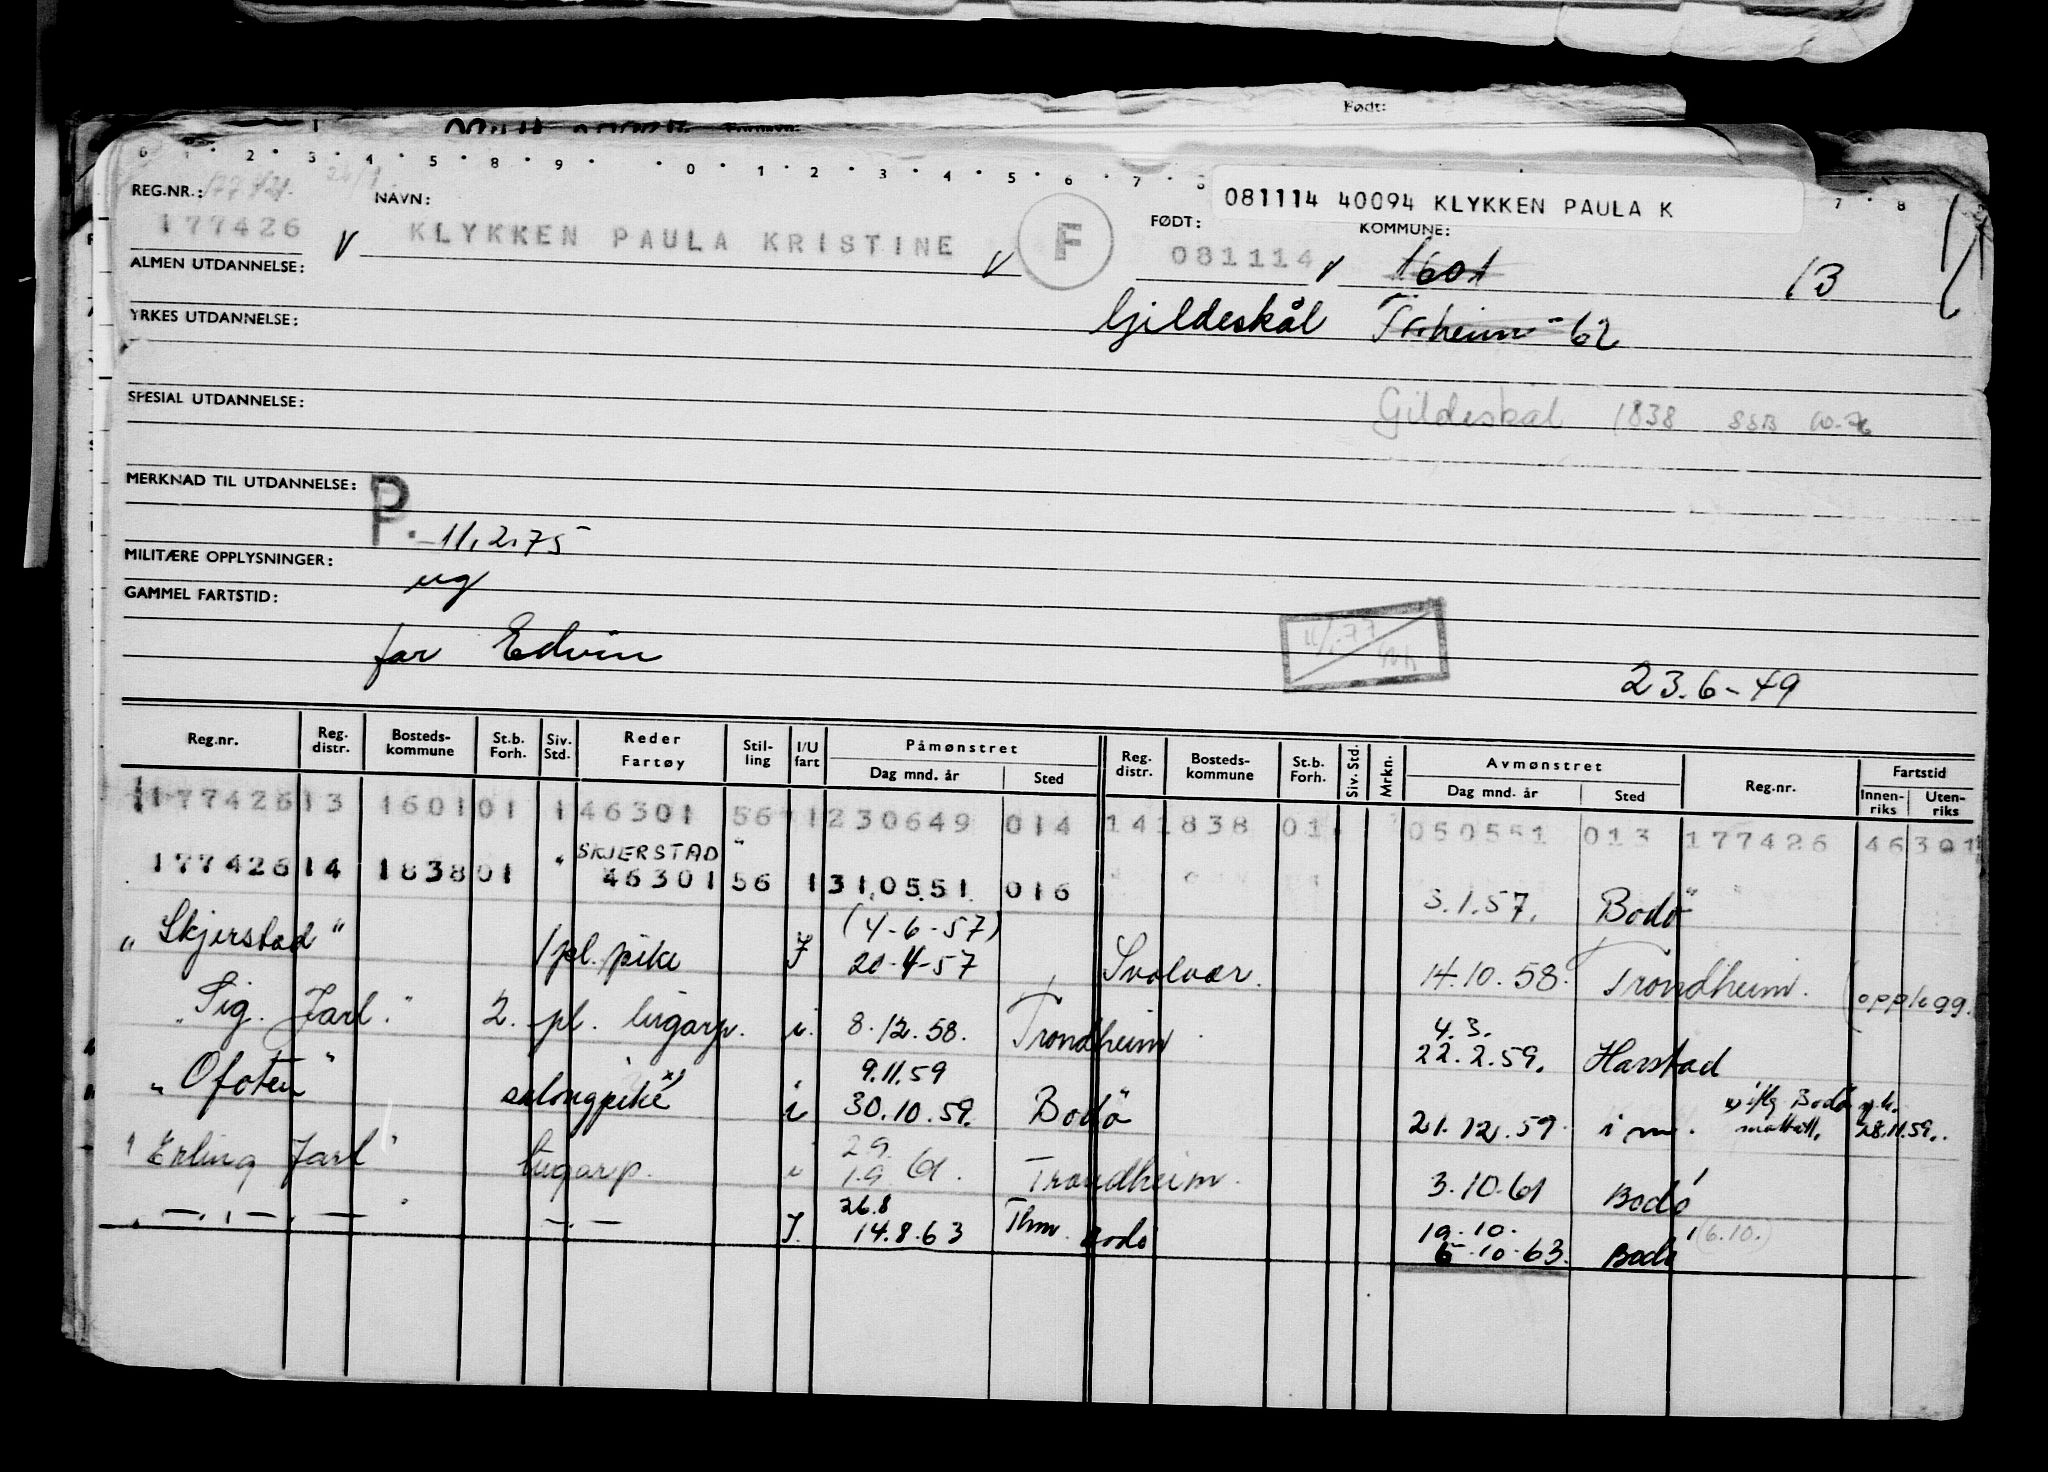 Født:
0 1 2 3 4 5 8 9 0 1 2 3 4 5 6 7 8
081114 40094 KLYKKEN PAULA K
7 8
REG.NR.:
NAVN:
FØDT:
KOMMUNE:
177426 V KLYKKEN PAULA KRISTINE V F 081114 V 1601 13
ALMEN UTDANNELSE:
Gjildeskål Tr.heim - 62
YRKES UTDANNELSE:
SPESIAL UTDANNELSE:
Gildeskål 1838 SSB 10-76
MERKNAD TIL UTDANNELSE:
P. 11.2.75
MILITÆRE OPPLYSNINGER:
ug
GAMMEL FARTSTID:
far Edvin
23.6-49
Reg.nr. Reg. distr. Bosteds-kommune St.b. Forh. Siv. Std. Reder Fartøy Stil-ling I/U fart Påmønstret Reg. distr. Bosteds-kommune St.b. Forh. Siv. Std. Mrkn. Avmønstret Reg.nr. Fartstid
Dag mnd. år Sted Dag mnd. år Sted Innen-riks Uten-riks
177426 13 1601 01 1 46301 56 1 230649 014 14 1838 01 050551 013 177426 46301
SKJERSTAD "
177426 14 1838 01 " 46301 56 1 310551 016 3.1.57. Bodø
(4-6-57)
"Skjerstad" 1 pl. pike I 20-4-57 Svolvær. 14.10.58. Trondheim. (opplagg.
"Sig. Jarl." 2. pl. lugarp. i. 8.12.58. Trondheim
4.3.
22.2.59. Harstad
9.11.59
"Ofoten" salongpike x) i 30.10.59. Bodø 21.12.59 i m.
x) iflg Bodø m.k.
mottatt. 28.11.59.
29.
"Erling Jarl" lugarp. i 1.9.61. Trondheim. 3.10.61 Bodø
26.8
" — . — . — " — . — I. 14.8.63 Thm. Bodø
19.10.
6.10.63. Bodø (6.10.)